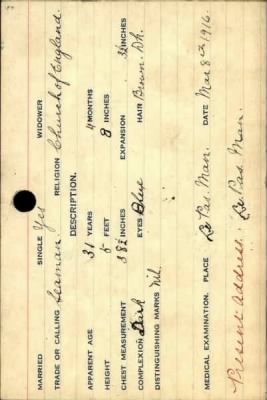 MARRIED SINGLE Yes WIDOWER
TRADE OR CALLING Seaman. RELIGION Church of England.
DESCRIPTION.
APPARENT AGE 31 YEARS 4 MONTHS
HEIGHT 5 FEET 8 INCHES
CHEST MEASUREMENT 38½ INCHES EXPANSION 3½ INCHES
COMPLEXION Dark EYES Blue HAIR Brown. Dk.
DISTINGUISHING MARKS Nil.
MEDICAL EXAMINATION. PLACE Le Pas. Man. DATE Mar 8th 1916.
Present Address: Le Pas. Man.